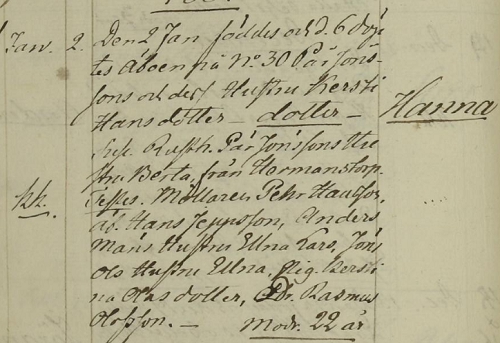 Jan. 2. Den 2 Jan föddes och d. 6 döp-
tes Åboen på No 30 Pär Jöns-
sons och dess Hustru Kersti
Hansdotter – dotter – Hanna
Pär Jönssons Hu-
stru Berta, från Hermanstorp.
kk. Testes. Möllaren Pehr Hansson,
Hans Jeppsson, Anders
Måns Hustru Ellna Lars, Jöns
Ols Hustru Ellna, Pig. Kersti-
na Olasdotter, Dr. Rasmus
Olosson. –
Modr. 22 år